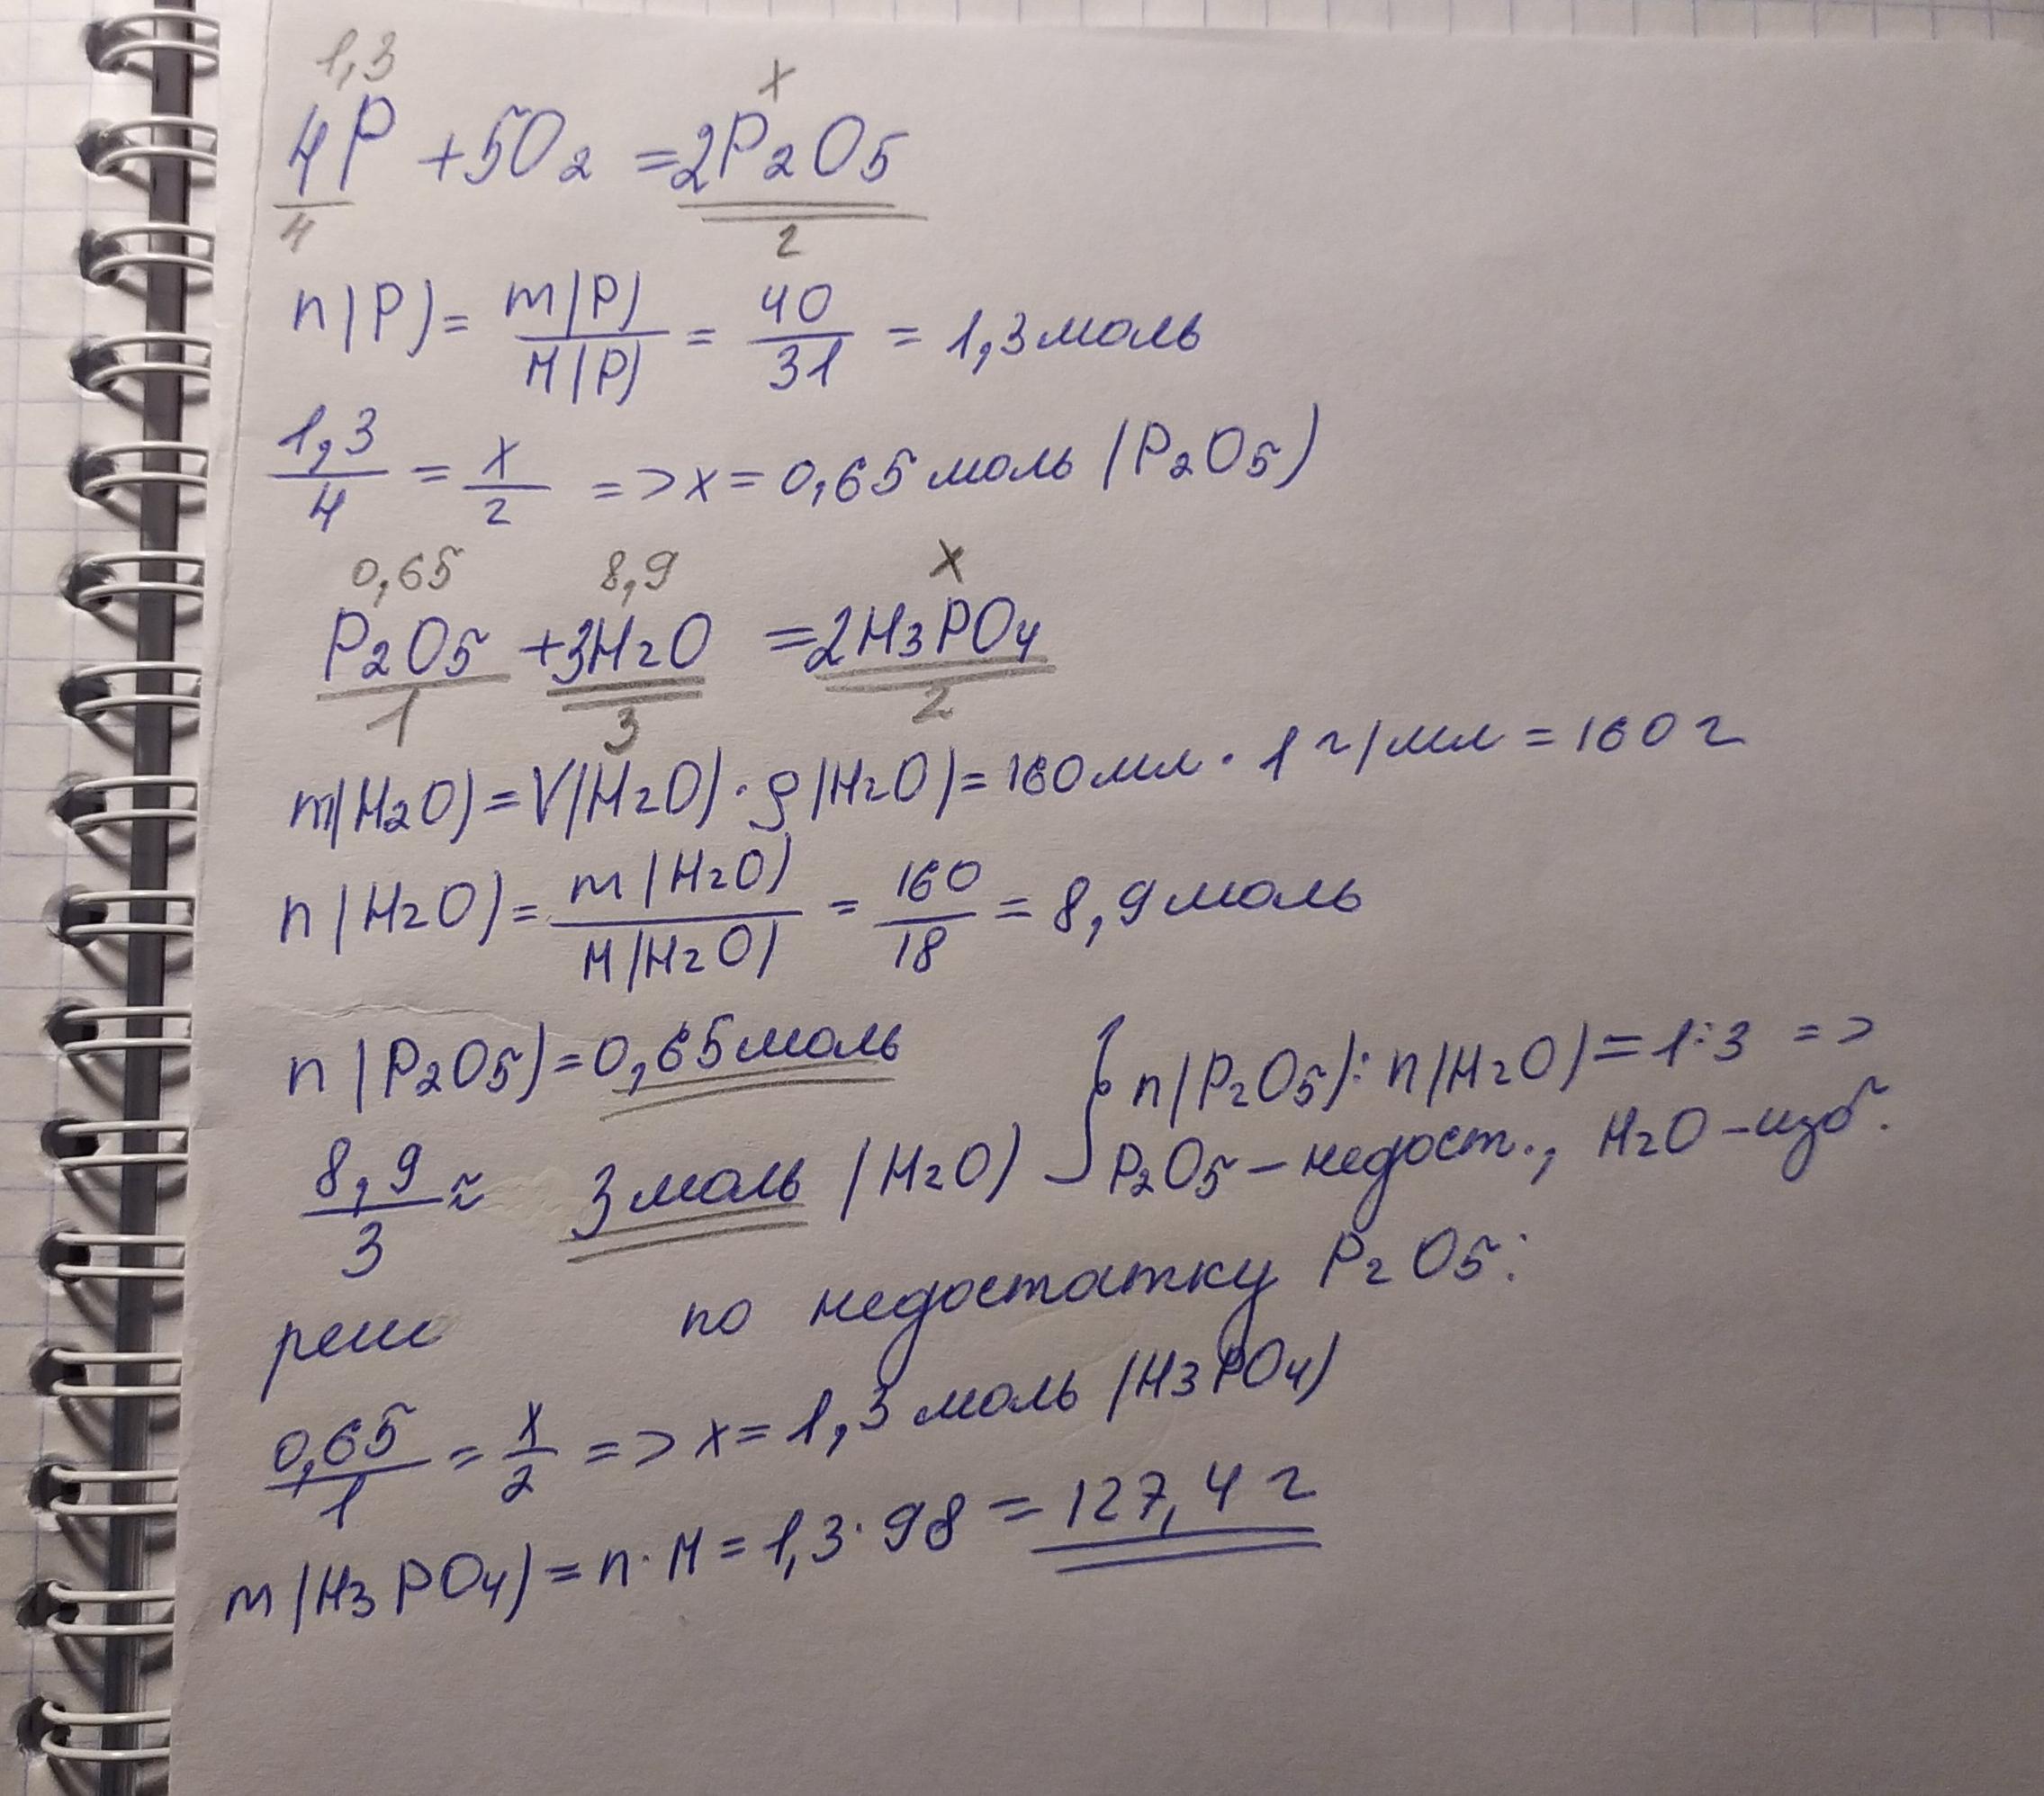 1,3 x
4P + 5O2 = 2P2O5
4 2
n(P) = m(P)/M(P) = 40/31 = 1,3 моль
1,3/4 = x/2 => x = 0,65 моль (P2O5)
0,65 8,9 x
P2O5 + 3H2O = 2H3PO4
1 3 2
m(H2O) = V(H2O) · ρ(H2O) = 160 мл · 1 г/мл = 160 г
n(H2O) = m(H2O)/M(H2O) = 160/18 = 8,9 моль
n(P2O5) = 0,65 моль
8,9/3 ≈ 3 моль (H2O)
n(P2O5) : n(H2O) = 1:3 =>
P2O5 – недост., H2O – изб.
реш по недостатку P2O5:
0,65/1 = x/2 => x = 1,3 моль (H3PO4)
m(H3PO4) = n · M = 1,3 · 98 = 127,4 г